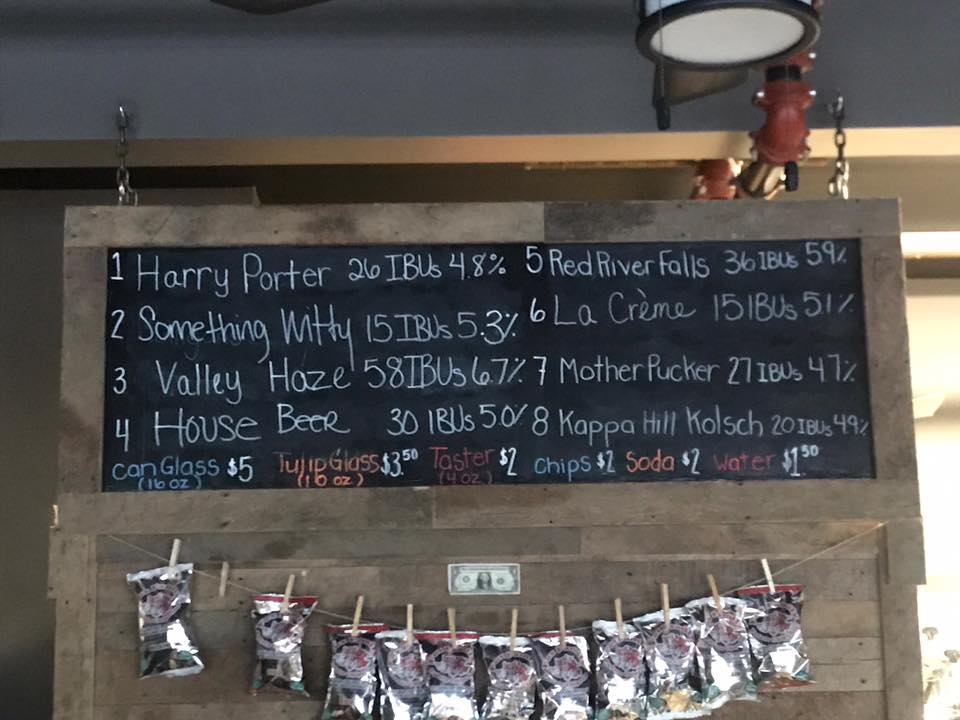 1 Harry Porter 26 IBUs 4.8%
2 Something Witty 15 IBUs 5.3%
3 Valley Haze 58 IBUs 6.7%
4 House Beer 30 IBUs 5.0%
5 Red River Falls 36 IBUs 5.9%
6 La Crème 15 IBUs 5.1%
7 Mother Pucker 27 IBUs 4.7%
8 Kappa Hill Kolsch 20 IBUs 4.9%
Can Glass $5 Tulip Glass $3.50 Taster $2 Chips $2 Soda $2 Water $1.50
(16 oz) (16 oz) (4 oz)